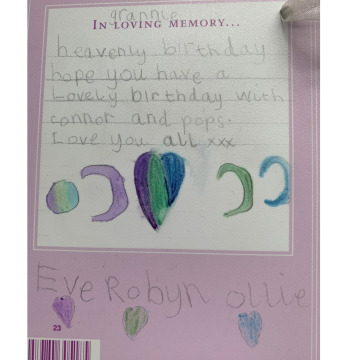 grannie
IN LOVING MEMORY...
heavenly birthday
hope you have a
Lovely birthday with
connor and pops.
Love you all xxx
Eve Robyn ollie
23